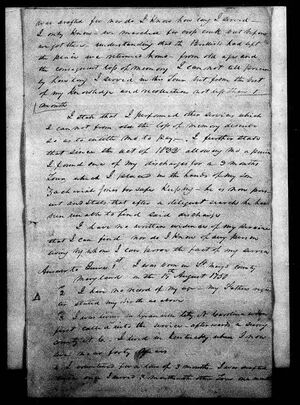 was drafted for nor do I know how long I served —
I only know we marched for
we got there understanding that the British had left
the place we returned home — from old age and
the consequent loss of memory I can not tell precisely
how long I served in this Tour but from the best
of my knowledge and recollection not less than 1
month
I state that I performed other services which
I can not from old age loss of memory
so as to entitle me to pay — I further state
that since the act of 1832 allowing me a pension
I found one of my discharges for a 3 months
Tour which I placed in the hands of my son
Zachariah Jones for safe keeping — he is now pres-
ent and states that after a diligent search he has
been unable to find said discharge
I have no written evidence of my service
that I can find nor do I know of any person
living by whom I can prove the fact of my service
Answer to Ques 1st. I was born in St Marys county
Maryland in the 15th August 1750
2 I have no record of my age — my Fathers
stated my birth as above
3 I was living in Granville Cty N Carolina when
first called into the service — afterwards in Surry
county &c — I lived in Kentucky where I now
live near forty years
4 I volunteered for a tour of 3 months. I was drafted
once I served 3 months